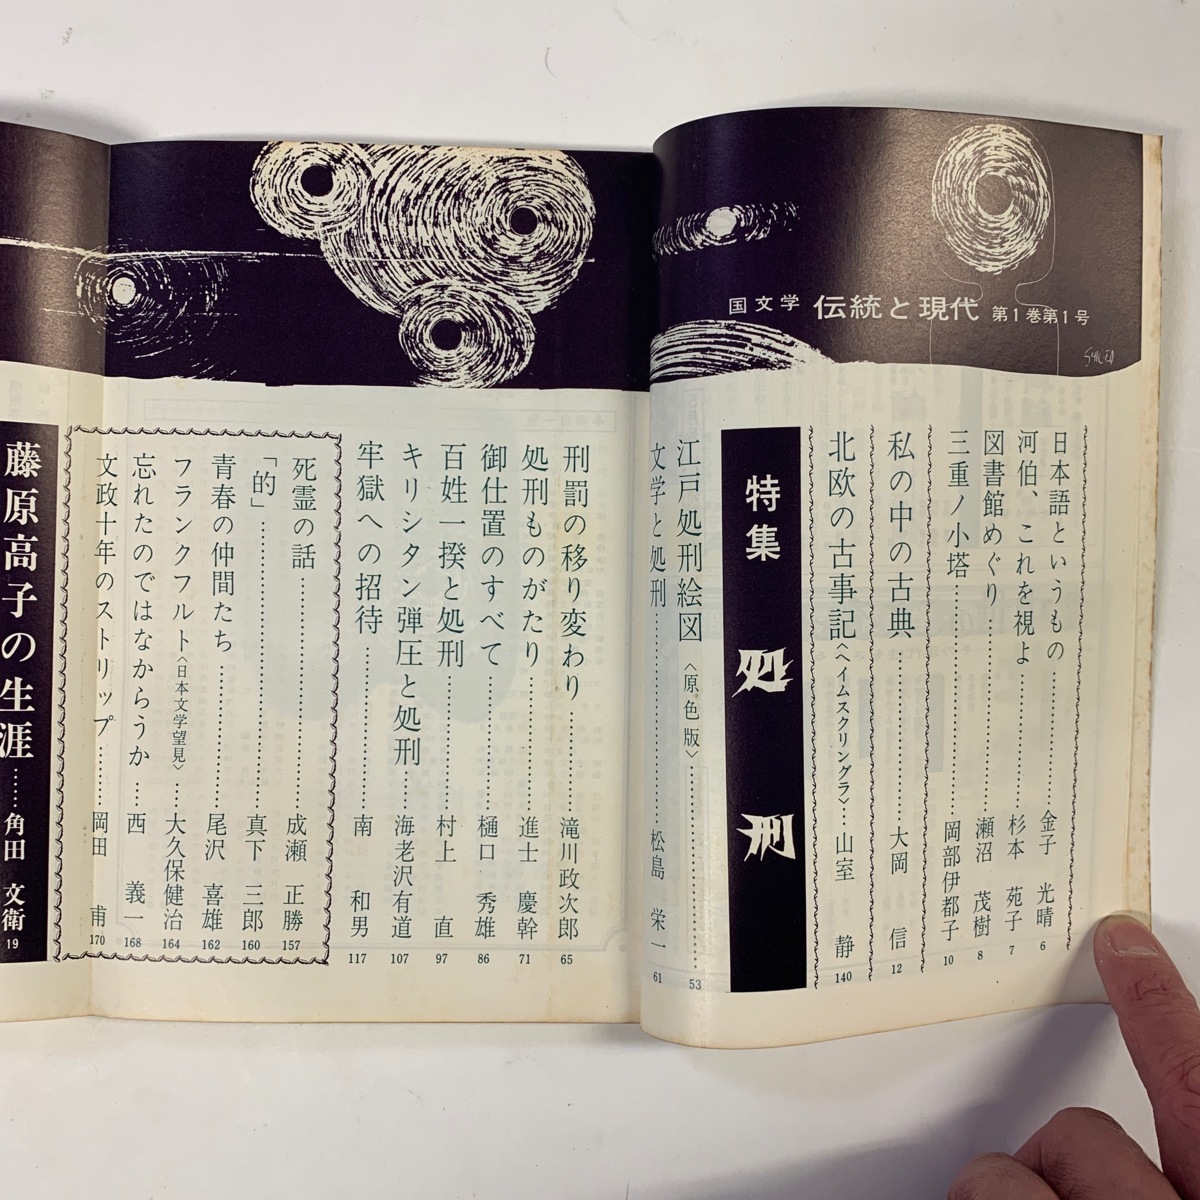 国文学 伝統と現代 第1巻第1号
日本語というもの…………金子 光晴 6
河伯、これを視よ…………杉本 苑子 7
図書館めぐり…………瀬沼 茂樹 8
三重ノ小塔…………岡部伊都子 10
私の中の古典…………大岡 信 12
北欧の古事記〈ヘイムスクリングラ〉…山室 静 140
特集 処刑
江戸処刑絵図〈原色版〉…………53
文学と処刑…………松島 栄一 61
刑罰の移り変わり…………滝川政次郎 65
処刑ものがたり…………進士 慶幹 71
御仕置のすべて…………樋口 秀雄 86
百姓一揆と処刑…………村上 直 97
キリシタン弾圧と処刑……海老沢有道 107
牢獄への招待…………南 和男 117
死霊の話…………成瀬 正勝 157
「的」…………真下 三郎 160
青春の仲間たち…………尾沢 喜雄 162
フランクフルト〈日本文学望見〉…大久保健治 164
忘れたのではなからうか…西 義一 168
文政十年のストリップ……岡田 甫 170
藤原高子の生涯……角田 文衛 19